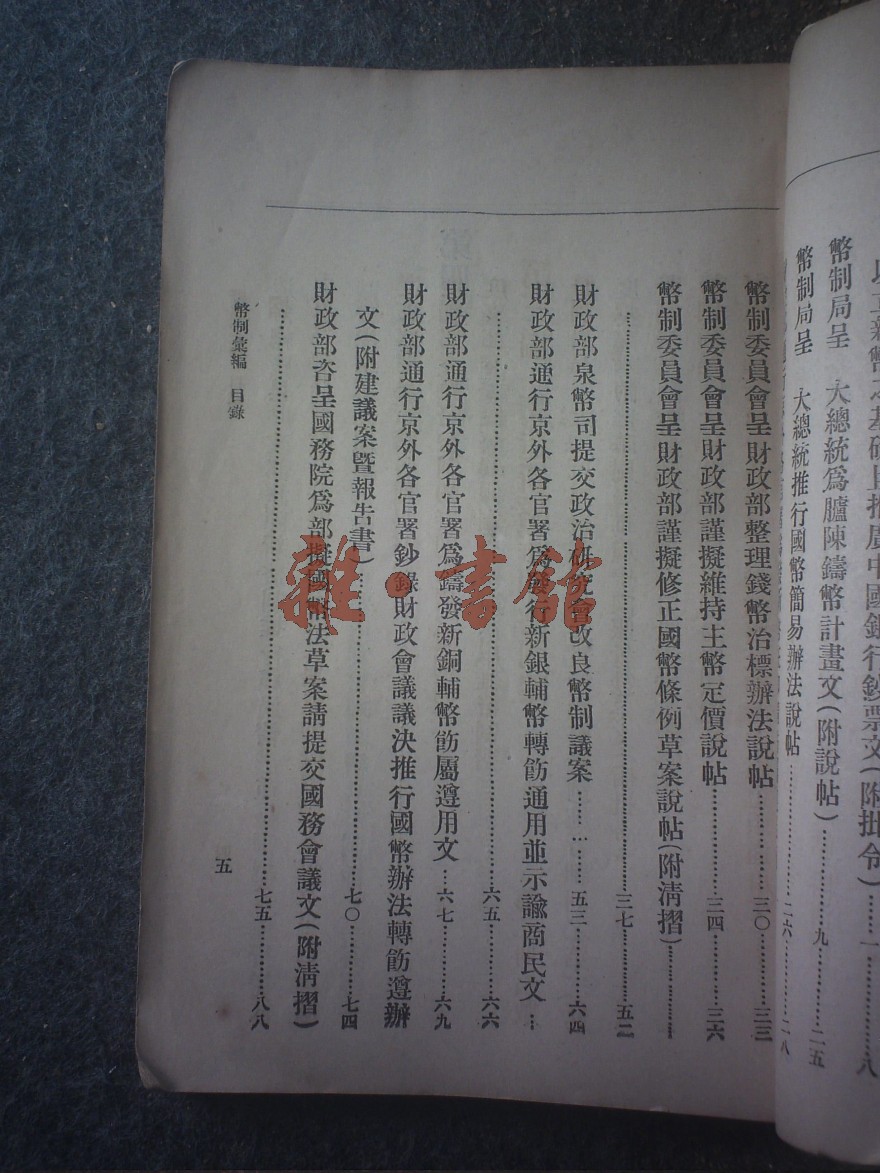 新幣之基礎且推廣中國銀行鈔票文(附批令)………一………八
幣制局呈　大總統爲臚陳鑄幣計畫文(附說帖)………九………二五
幣制局呈　大總統推行國幣簡易辦法說帖………二六………二八
幣制委員會呈財政部整理錢幣治標辦法說帖………三〇………三三
幣制委員會呈財政部謹擬維持主幣定價說帖………三四………三六
幣制委員會呈財政部謹擬修正國幣條例草案說帖(附清摺)………
………三七………五二
財政部泉幣司提交政治研究會改良幣制議案………五三………六四
財政部通行京外各官署爲發行新銀輔幣轉飭通用並示諭商民文…
………六五………六六
財政部通行京外各官署爲鑄發新銅輔幣飭屬遵用文…六七………六九
財政部通行京外各官署鈔錄財政會議議決推行國幣辦法轉飭遵辦
文(附建議案暨報告書)………七〇………七四
財政部咨呈國務院爲部擬國幣法草案請提交國務會議文(附清摺)
………七五………八八
幣制彙編　目錄
五
雜·書館